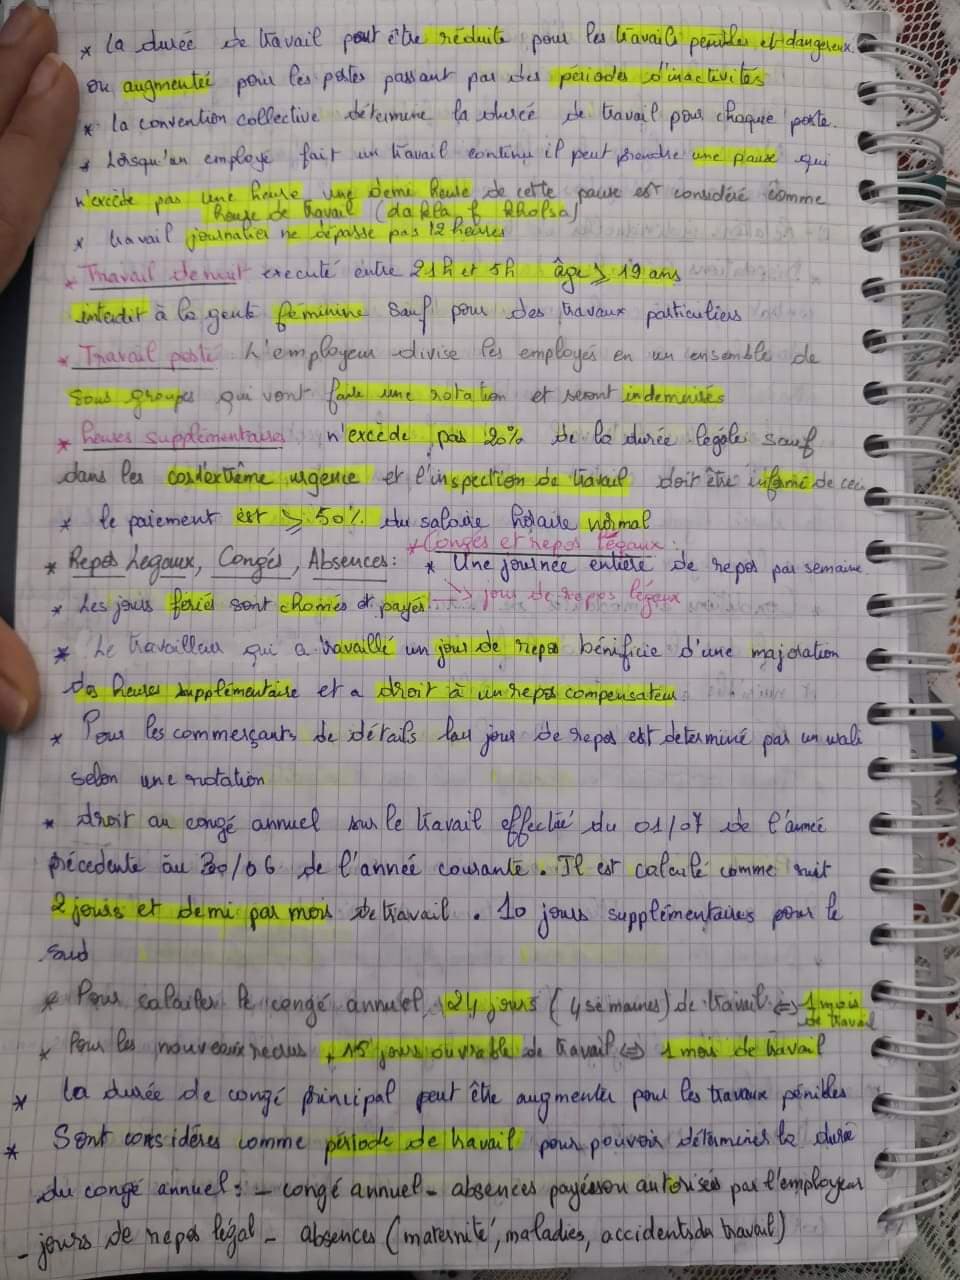 * La durée de travail peut être réduite pour les travails pénibles et dangereux
ou augmentée pour les postes passant par des périodes d'inactivités
* la convention collective détermine la durée de travail pour chaque poste.
* Lorsqu'un employé fait un travail continu il peut prendre une pause qui
n'excède pas une heure une demi heure de cette pause est considéré comme
heure de travail (dakla f kholsa)
* travail journalier ne dépasse pas 12 heures
* Travail de nuit executé entre 21h et 5h âge ⩾ 19 ans
interdit à la gente féminine sauf pour des travaux particuliers
* Travail posté : L'employeur divise les employés en un ensemble de
sous groupes qui vont faire une rotation et seront indemnisés
* heures supplémentaires n'excède pas 20% de la durée légale sauf
dans les cas d'extrême urgence et l'inspection de travail doit être informé de ceci
* le paiement est ⩾ 50% du salaire horaire normal
* Congés et repos légaux :
* Repos Legaux, Congés, Absences : * Une journée entière de repos par semaine
* Les jours férié sont chomés et payés → jour de repos légaux
* Le travailleur qui a travaillé un jour de repos bénificie d'une majoration
des heures supplémentaire et a droit à un repos compensateur
* Pour les commerçants de détails leur jour de repos est determiné par un wali
selon une rotation
* droit au congé annuel sur le travail effectué du 01/07 de l'année
précedente au 30/06 de l'année courante. Il est calculé comme suit
2 jours et demi par mois de travail . 10 jours supplémentaires pour le
sud
* Pour calculer le congé annuel, 24 jours (4 semaines) de travail ⇔ 1 mois
de travail
* Pour les nouveaux recrus, + 15 jours ouvrable de travail ⇔ 1 mois de travail
* La durée de congé principal peut être augmenter pour les travaux pénibles
* Sont considéres comme période de travail pour pouvoir déterminer la durée
du congé annuel : - congé annuel - absences payés ou autorisées par l'employeur
- jours de repos légal - absences (maternité, maladies, accidents du travail)